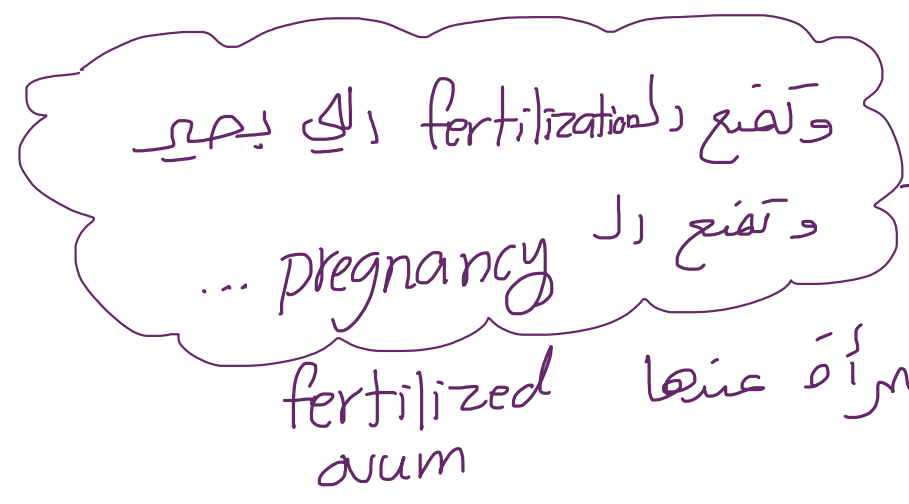 وتمنع الـ fertilization الي بصير
وتمنع الـ pregnancy ...
مرأة عندها fertilized
ovum